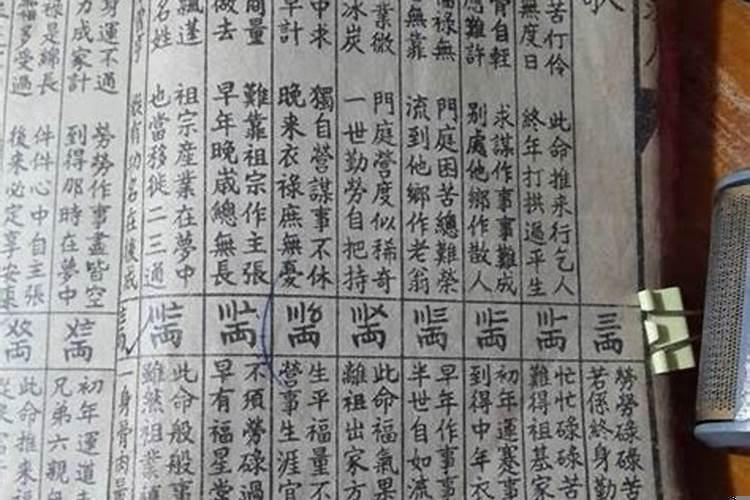 苦仃伶 此命推来行乞人
無度日 終年打拱過平生
骨自輕 求謀作事事難成
應難許 别處他鄉作散人
福祿無 門庭困苦總難榮
無靠 流到他鄉作老翁
業微 門庭營度似稀奇
冰炭 一世勤勞自把持
中求 獨自營謀事不休
早計 晚来衣祿庶無憂
商量 難靠祖宗作主張
做去 早年晚歲總無長
飄蓬 祖宗產業在夢中
名姓 也當移徙二三通
身運不通 勞勞作事盡皆空
力成家計 到得那時在夢中
祿是綿長 件件心中自主張
多受過 後来必定享安康
三両
勞勞碌碌苦
若係終身勤
忙忙碌碌苦
難得祖基家
初年運蹇事
到得中年衣
早年作事事
半世自如流
此命福氣果
離祖出家方
生平福量不
營事生涯宜
不須勞碌過
早有福星堂
此命般般事
雖然祖業
一身骨肉
初年運道
兄弟六親
此命推来福